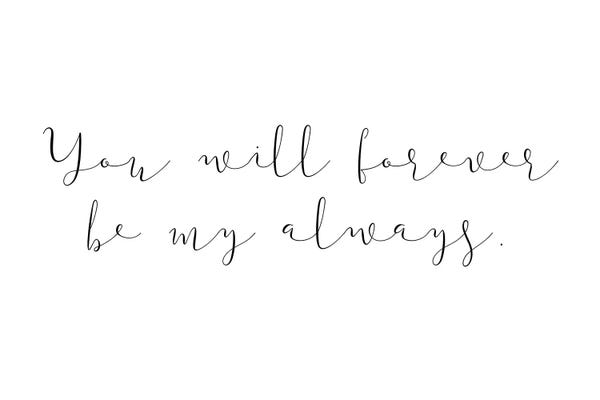 You will forever
be my always.